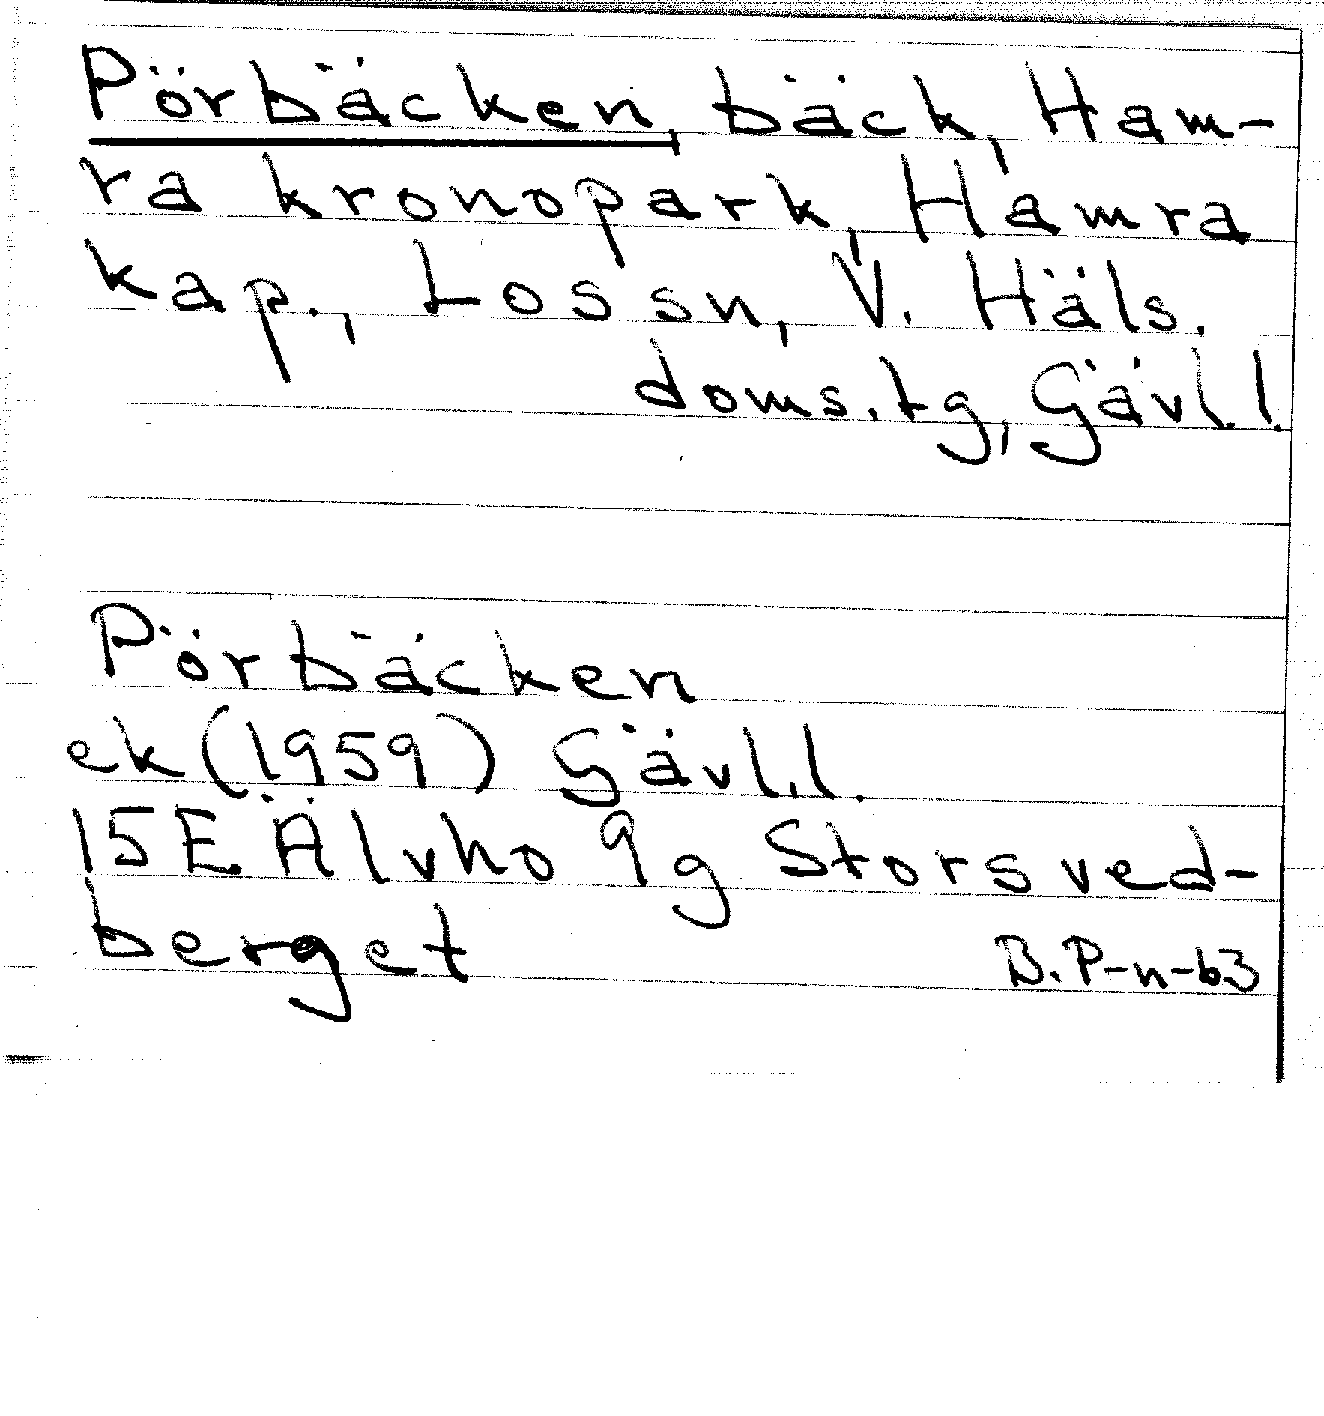 Pörbäcken, bäck, Ham-
ra kronopark, Hamra
kap., Lossn, V. Häls.
doms.tg, Gävl.l.
Pörbäcken
ek (1959) Gävl.l.
15E. Älvho 9g Storsved-
berget
B.P-n-63